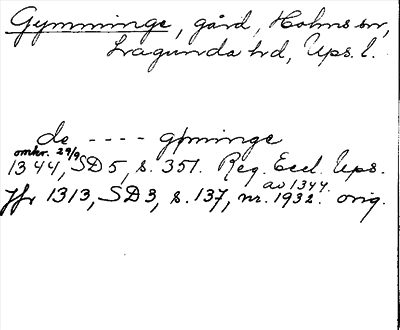 Gymminge, gård, Holms sn,
Lagunda hd, Ups. l.
de - - - - gyminge
omkr. 29/9
1344, SD 5, s. 351. Reg. Eccl. Ups.
av 1344.
Jfr 1313, SD 3, s. 137, nr. 1932. orig.